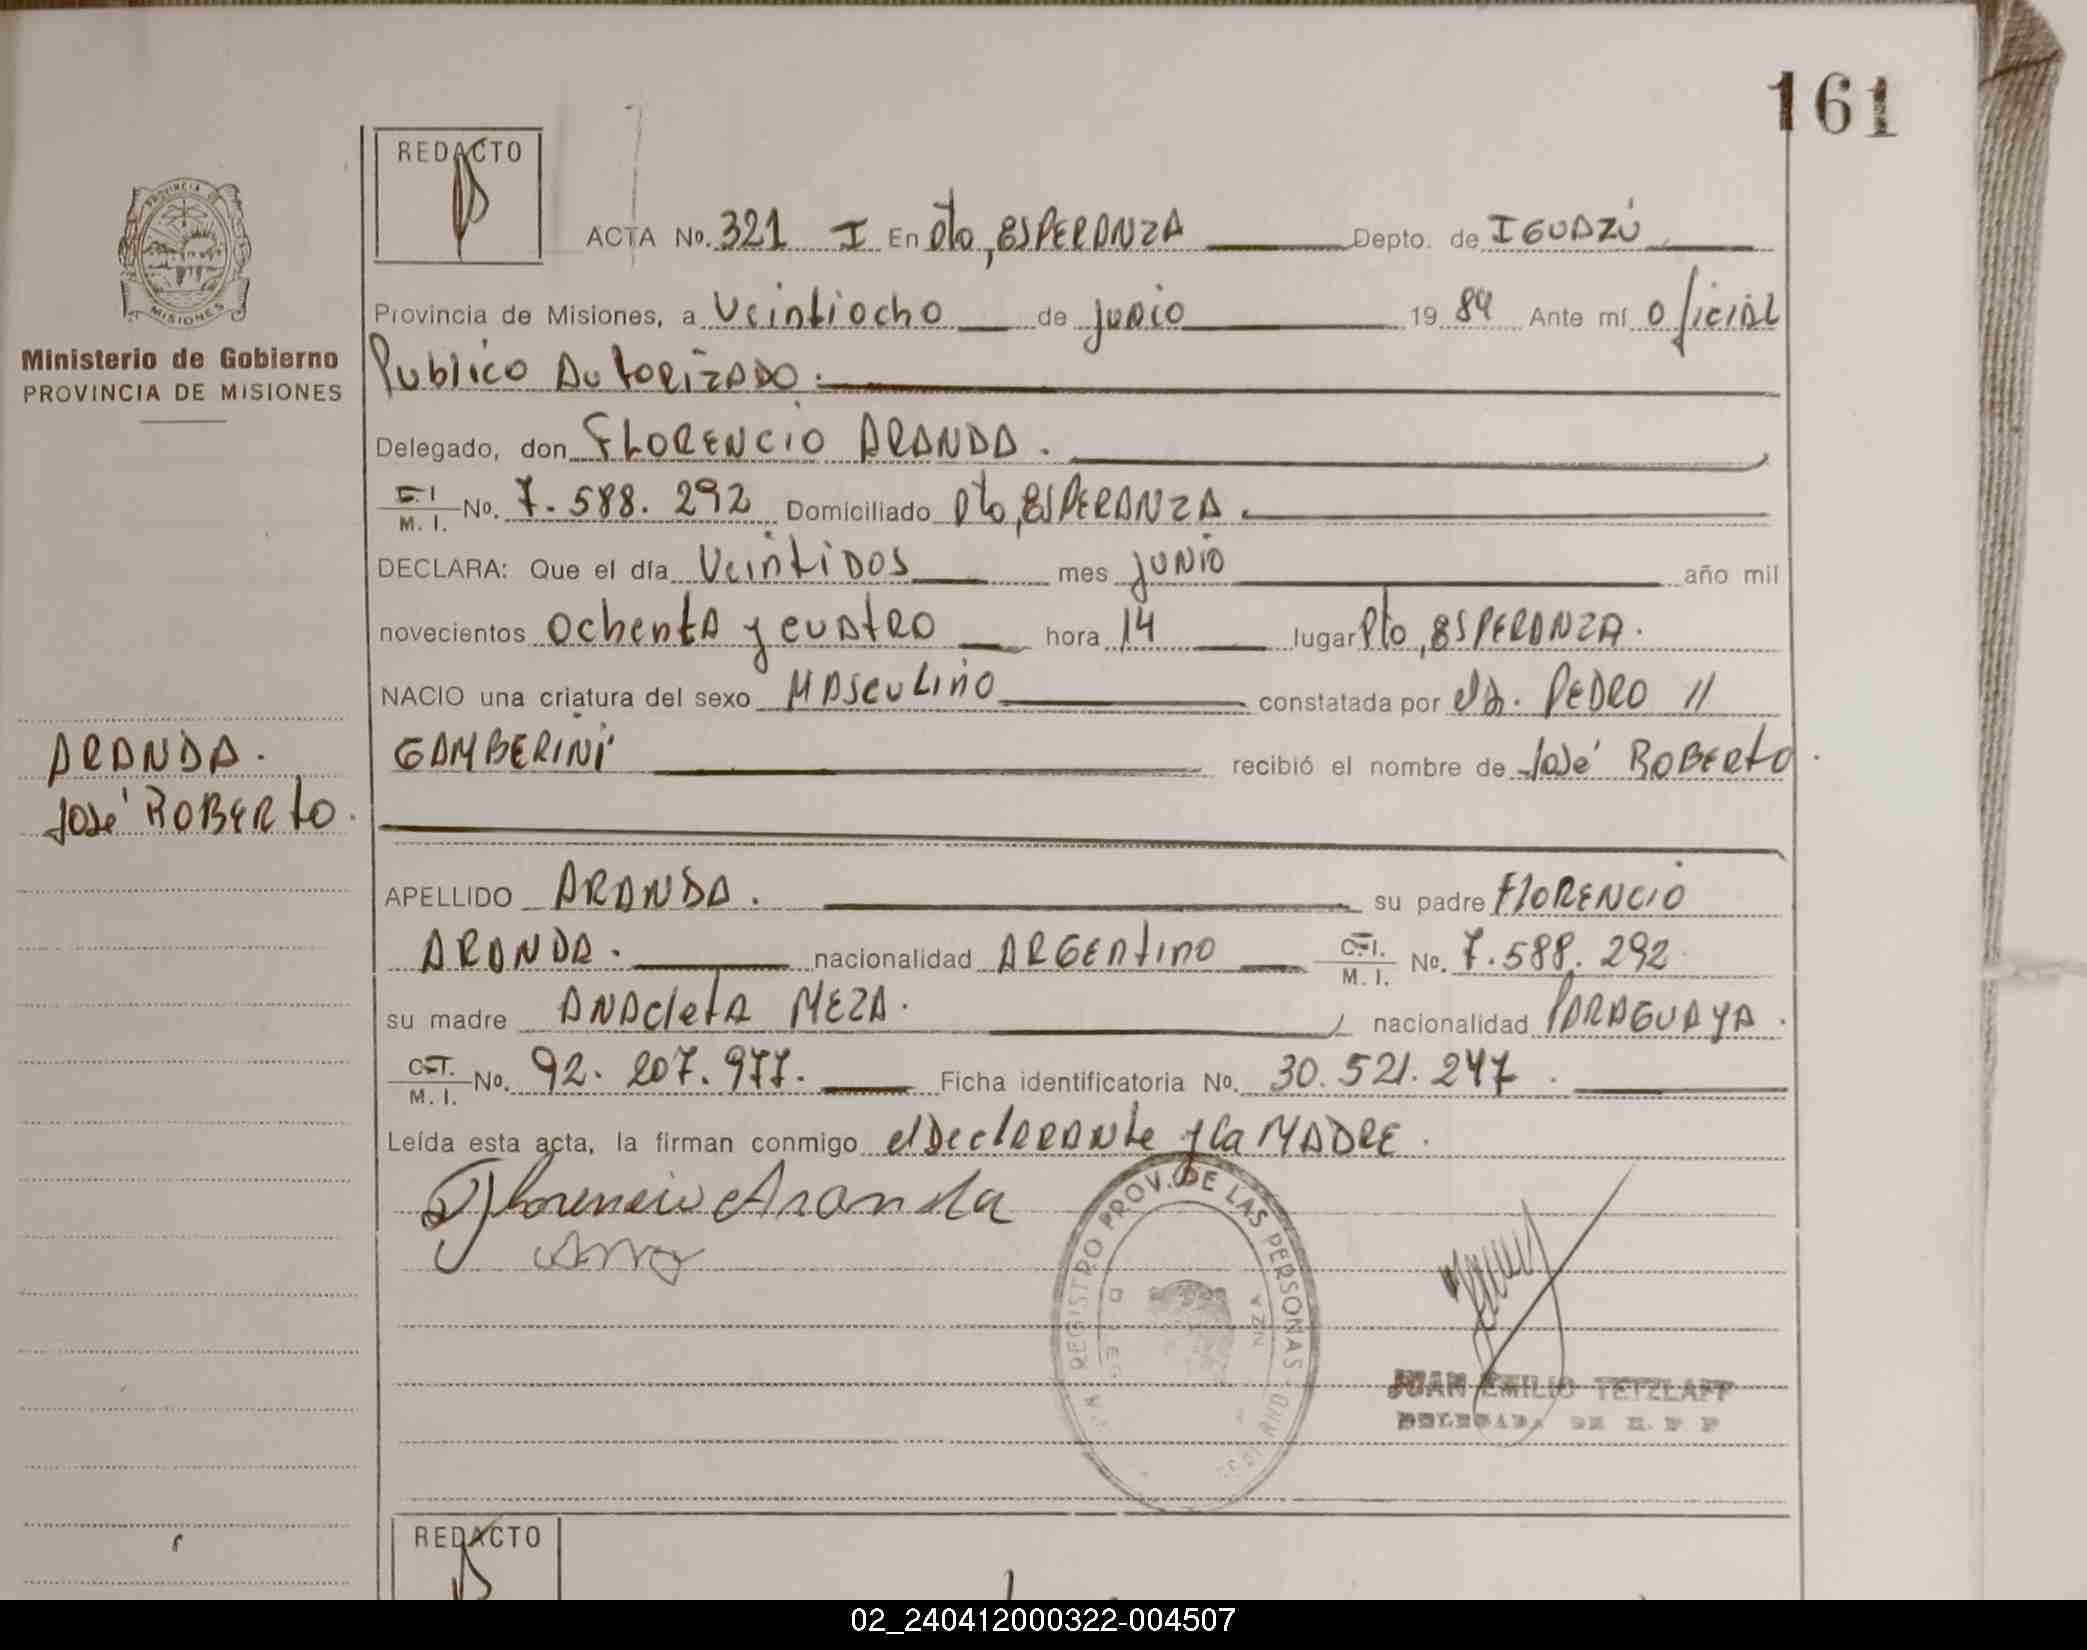 161
REDACTO
ACTA No. 321 I En Pto, ESPERANZA Depto. de IGUAZÚ
PROVINCIA DE
MISIONES
Ministerio de Gobierno
PROVINCIA DE MISIONES
Provincia de Misiones, a Veintiocho de junio 1984 Ante mí Oficial
Publico Autorizado.
Delegado, don FLORENCIO ARANDA.
C.I. M. I. No. 7.588.292 Domiciliado Pto, ESPERANZA.
DECLARA: Que el día Veintidos mes junio año mil
novecientos ochenta y cuatro hora 14 lugar Pto, ESPERANZA.
NACIO una criatura del sexo MASCULINO constatada por el Dr. PEDRO //
GAMBERINI recibió el nombre de José ROBERTO.
ARANDA.
José ROBERTO.
APELLIDO ARANDA. su padre FLORENCIO
ARANDA. nacionalidad ARGENTINO C.I. M. I. No. 7.588.292
su madre ANACLETA MEZA. nacionalidad PARAGUAYA.
C.I. M. I. No. 92.207.977. Ficha identificatoria No. 30.521.247.
Leída esta acta, la firman conmigo el DeclARANte y la MADRE.
Florencio Aranda
REGISTRO PROV. DE LAS PERSONAS
JUAN EMILIO TETZLAFF
DELEGADA DE R. P P
REDACTO
02_240412000322-004507